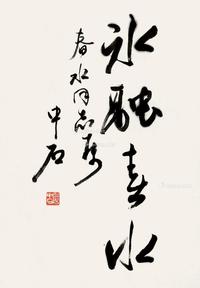 冰融春水
春水同志属
中石